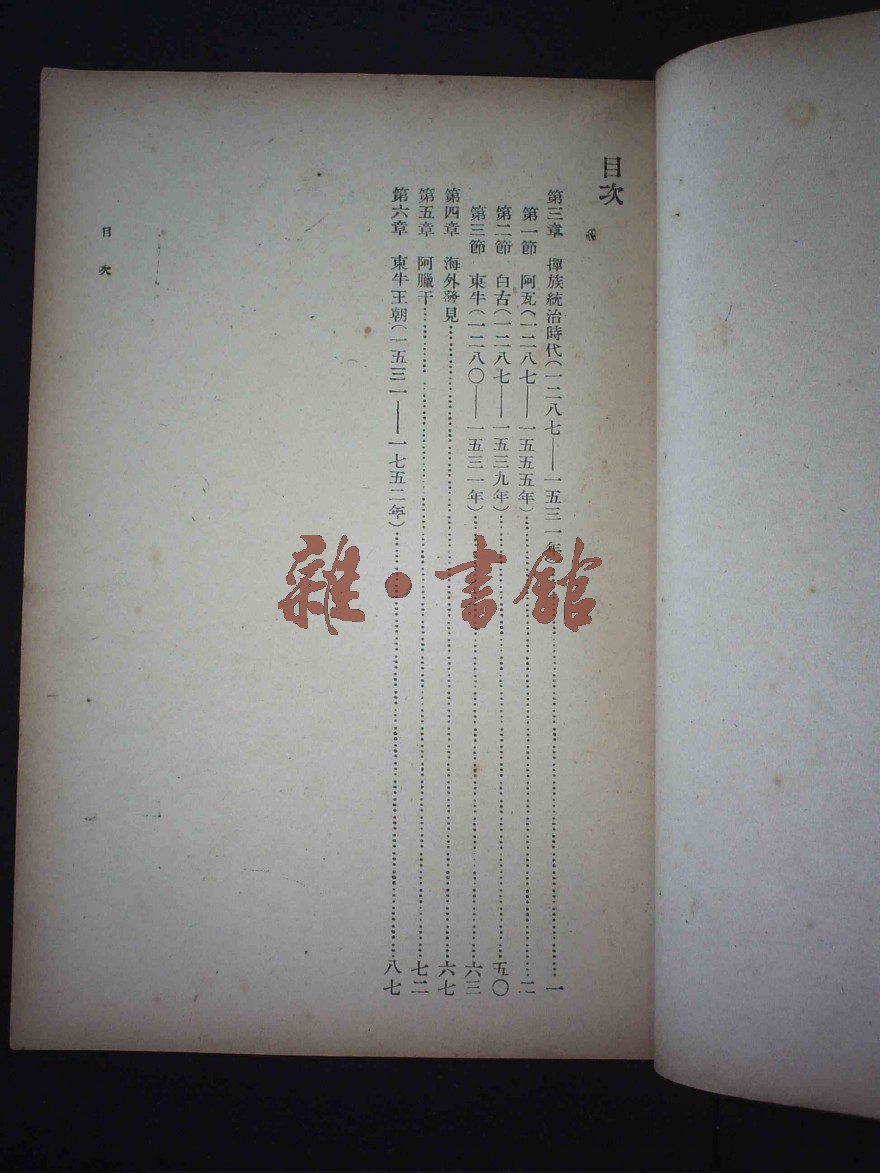 目次
第三章　撣族統治時代(一二八七——一五三一年……一
第一節　阿瓦(一二八七——一五五五年)……二
第二節　白古(一二八七——一五三九年)……五〇
第三節　東牛(一二八〇——一五三一年)……六三
第四章　海外發見……六七
第五章　阿臘干……七二
第六章　東牛王朝(一五三一——一七五二年)……八七
目次
雜·書館